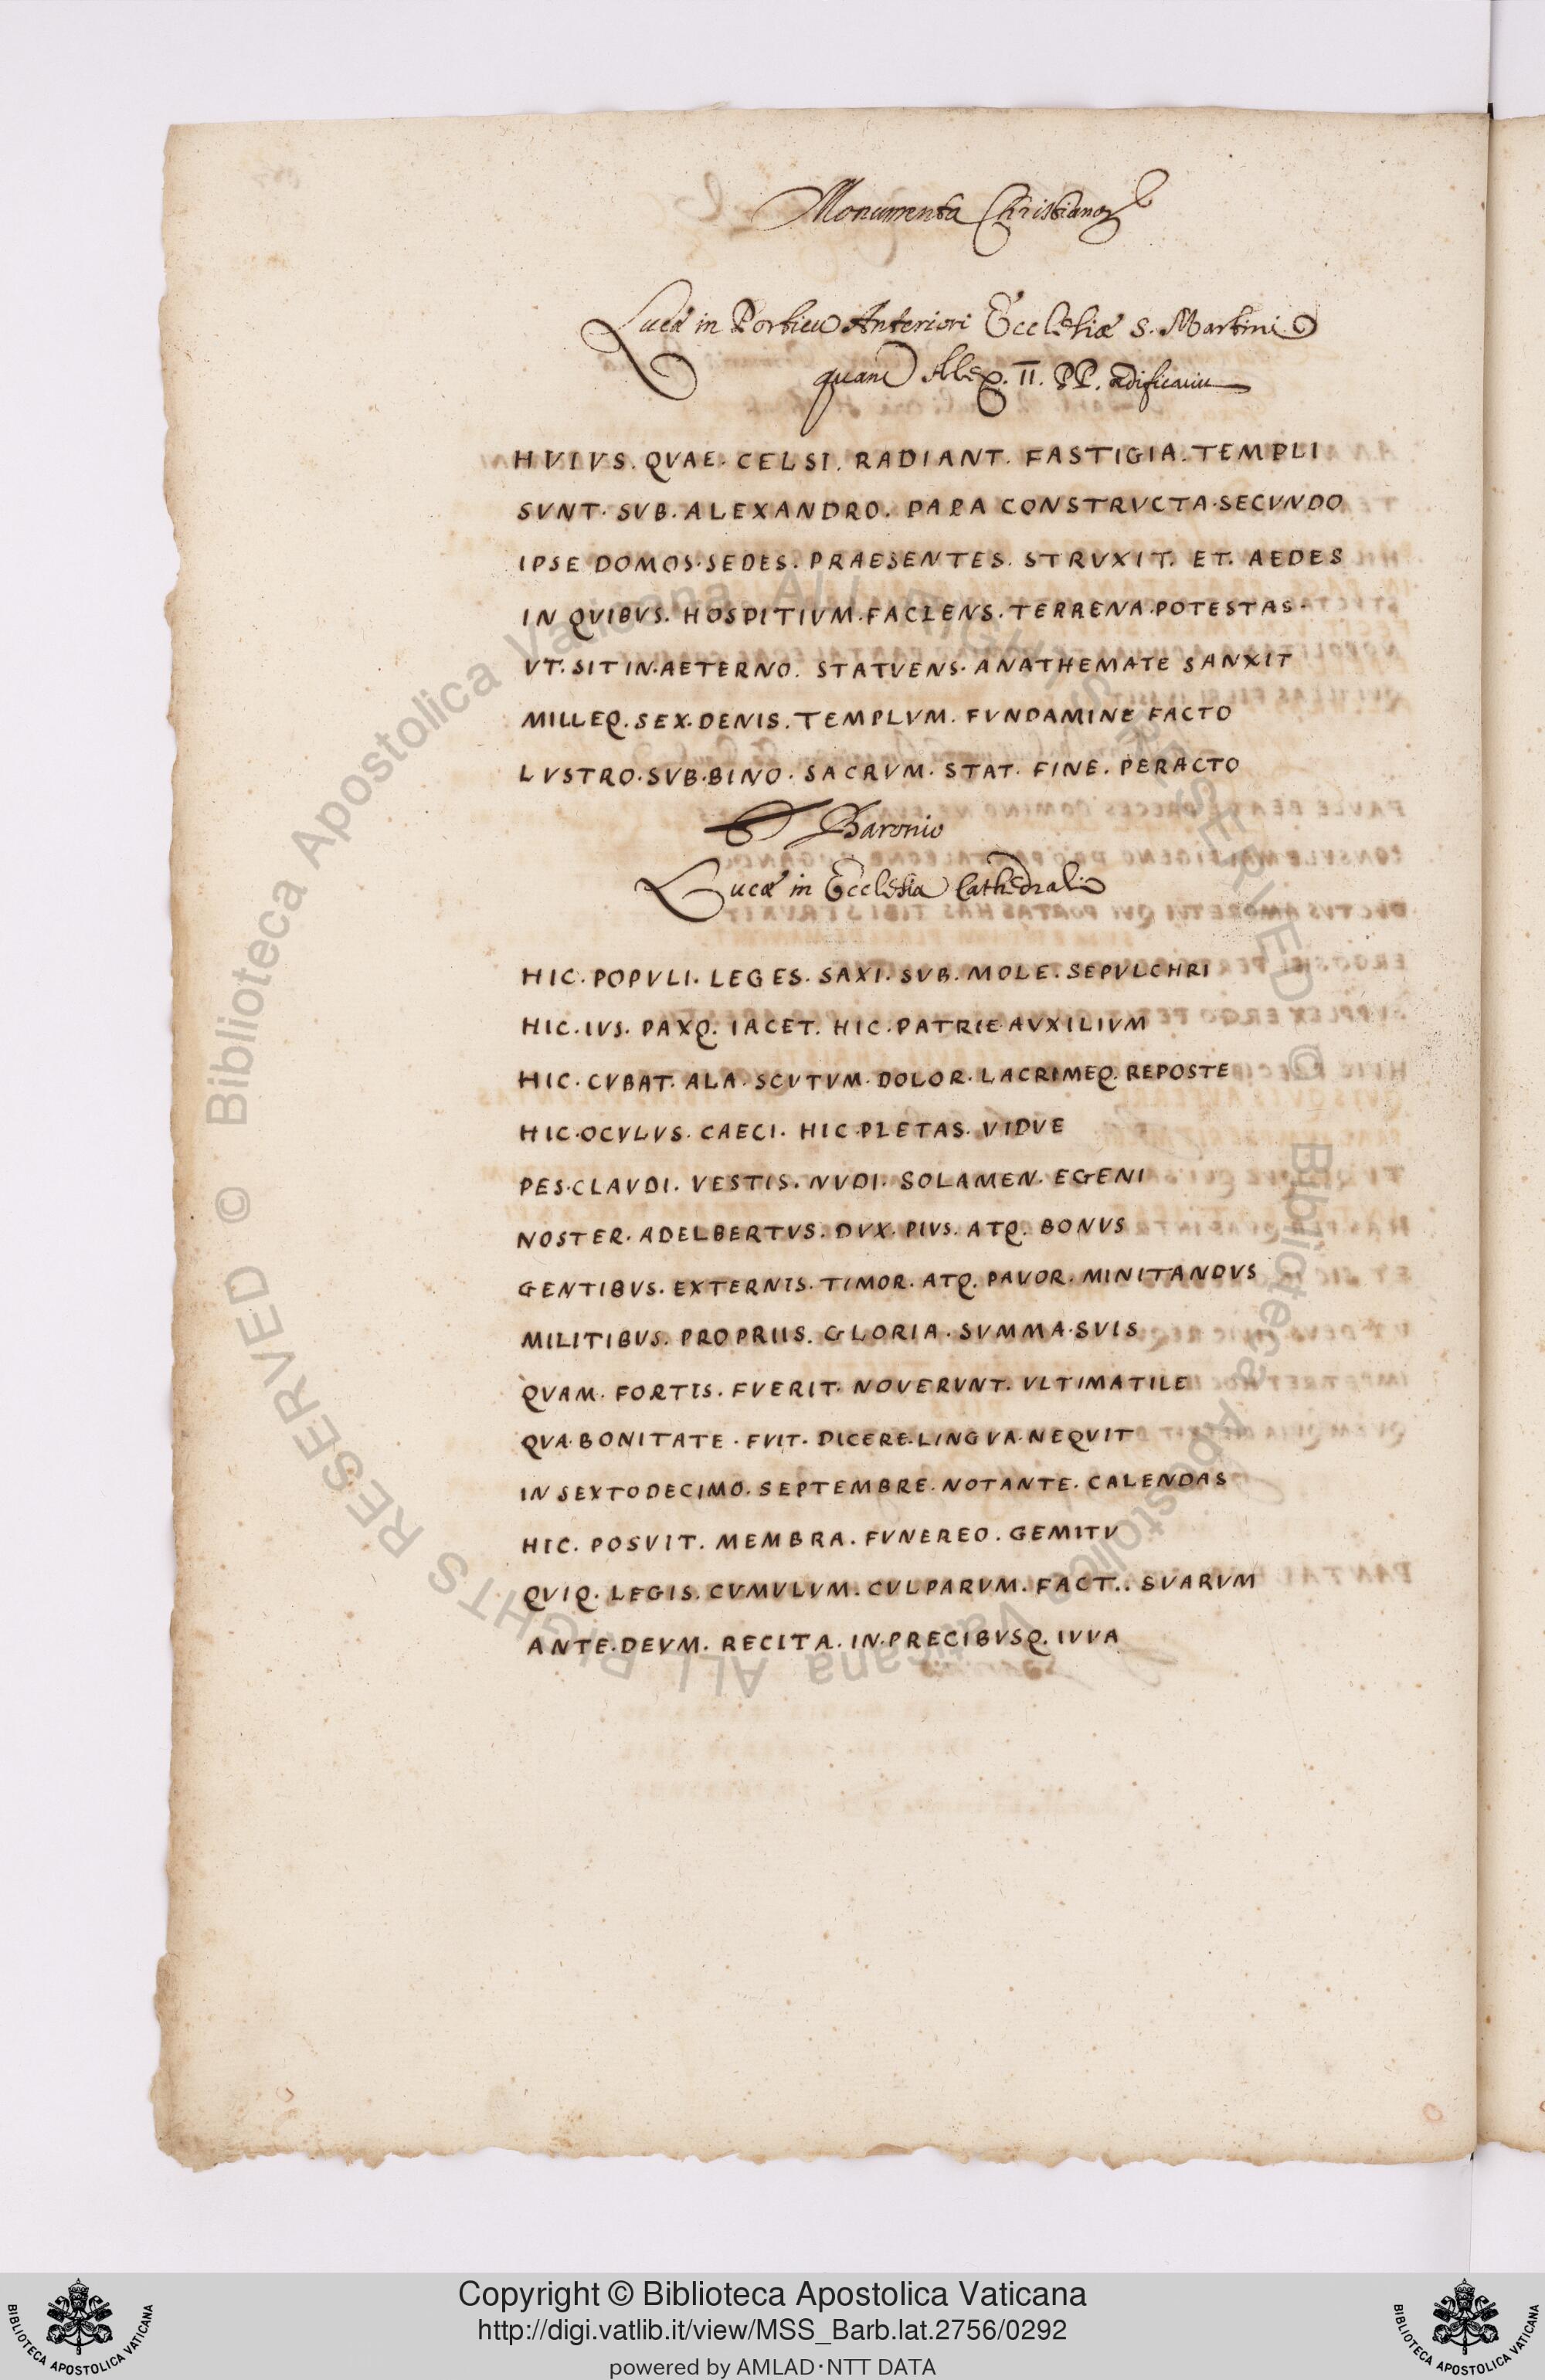 Monumenta Christianoꝝ
Lucæ in Porticu Anteriori Ecclesiæ S. Martini
quam Alex. II. PP. ædificauit
HVIVS. QVAE. CELSI. RADIANT. FASTIGIA. TEMPLI
SVNT. SVB. ALEXANDRO. PAPA CONSTRVCTA. SECVNDO
IPSE DOMOS. SEDES. PRAESENTES. STRVXIT. ET. AEDES
IN QVIBVS. HOSPITIVM. FACIENS. TERRENA. POTESTAS.
VT. SIT IN. AETERNO. STATVENS. ANATHEMATE SANXIT
MILLEQ. SEX. DENIS. TEMPLVM. FVNDAMINE FACTO
LVSTRO. SVB. BINO. SACRVM. STAT. FINE. PERACTO
Baronio
Lucæ in Ecclesia Cathedrali
HIC. POPVLI. LEGES. SAXI. SVB. MOLE. SEPVLCHRI
HIC. IVS. PAXQ. IACET. HIC. PATRIE AVXILIVM
HIC. CVBAT. ALA. SCVTVM. DOLOR. LACRIMEQ. REPOSTE
HIC. OCVLVS. CAECI. HIC. PIETAS. VIDVE
PES. CLAVDI. VESTIS. NVDI. SOLAMEN. EGENI
NOSTER. ADELBERTVS. DVX. PIVS. ATQ. BONVS
GENTIBVS. EXTERNIS. TIMOR. ATQ. PAVOR. MINITANDVS
MILITIBVS. PROPRIIS. GLORIA. SVMMA. SVIS
QVAM. FORTIS. FVERIT. NOVERVNT. VLTIMATILE
QVA. BONITATE. FVIT. DICERE. LINGVA. NEQVIT
IN SEXTODECIMO. SEPTEMBRE. NOTANTE. CALENDAS
HIC. POSVIT. MEMBRA. FVNEREO. GEMITV
QVIQ. LEGIS. CVMVLVM. CVLPARVM. FACT.. SVARVM
ANTE. DEVM. RECITA. IN. PRECIBVSQ. IVVA
Copyright © Biblioteca Apostolica Vaticana
http://digi.vatlib.it/view/MSS_Barb.lat.2756/0292
powered by AMLAD·NTT DATA
BIBLIOTECA APOSTOLICA VATICANA
BIBLIOTECA APOSTOLICA VATICANA
© Biblioteca Apostolica Vaticana ALL RIGHTS RESERVED
© Biblioteca Apostolica Vaticana ALL RIGHTS RESERVED